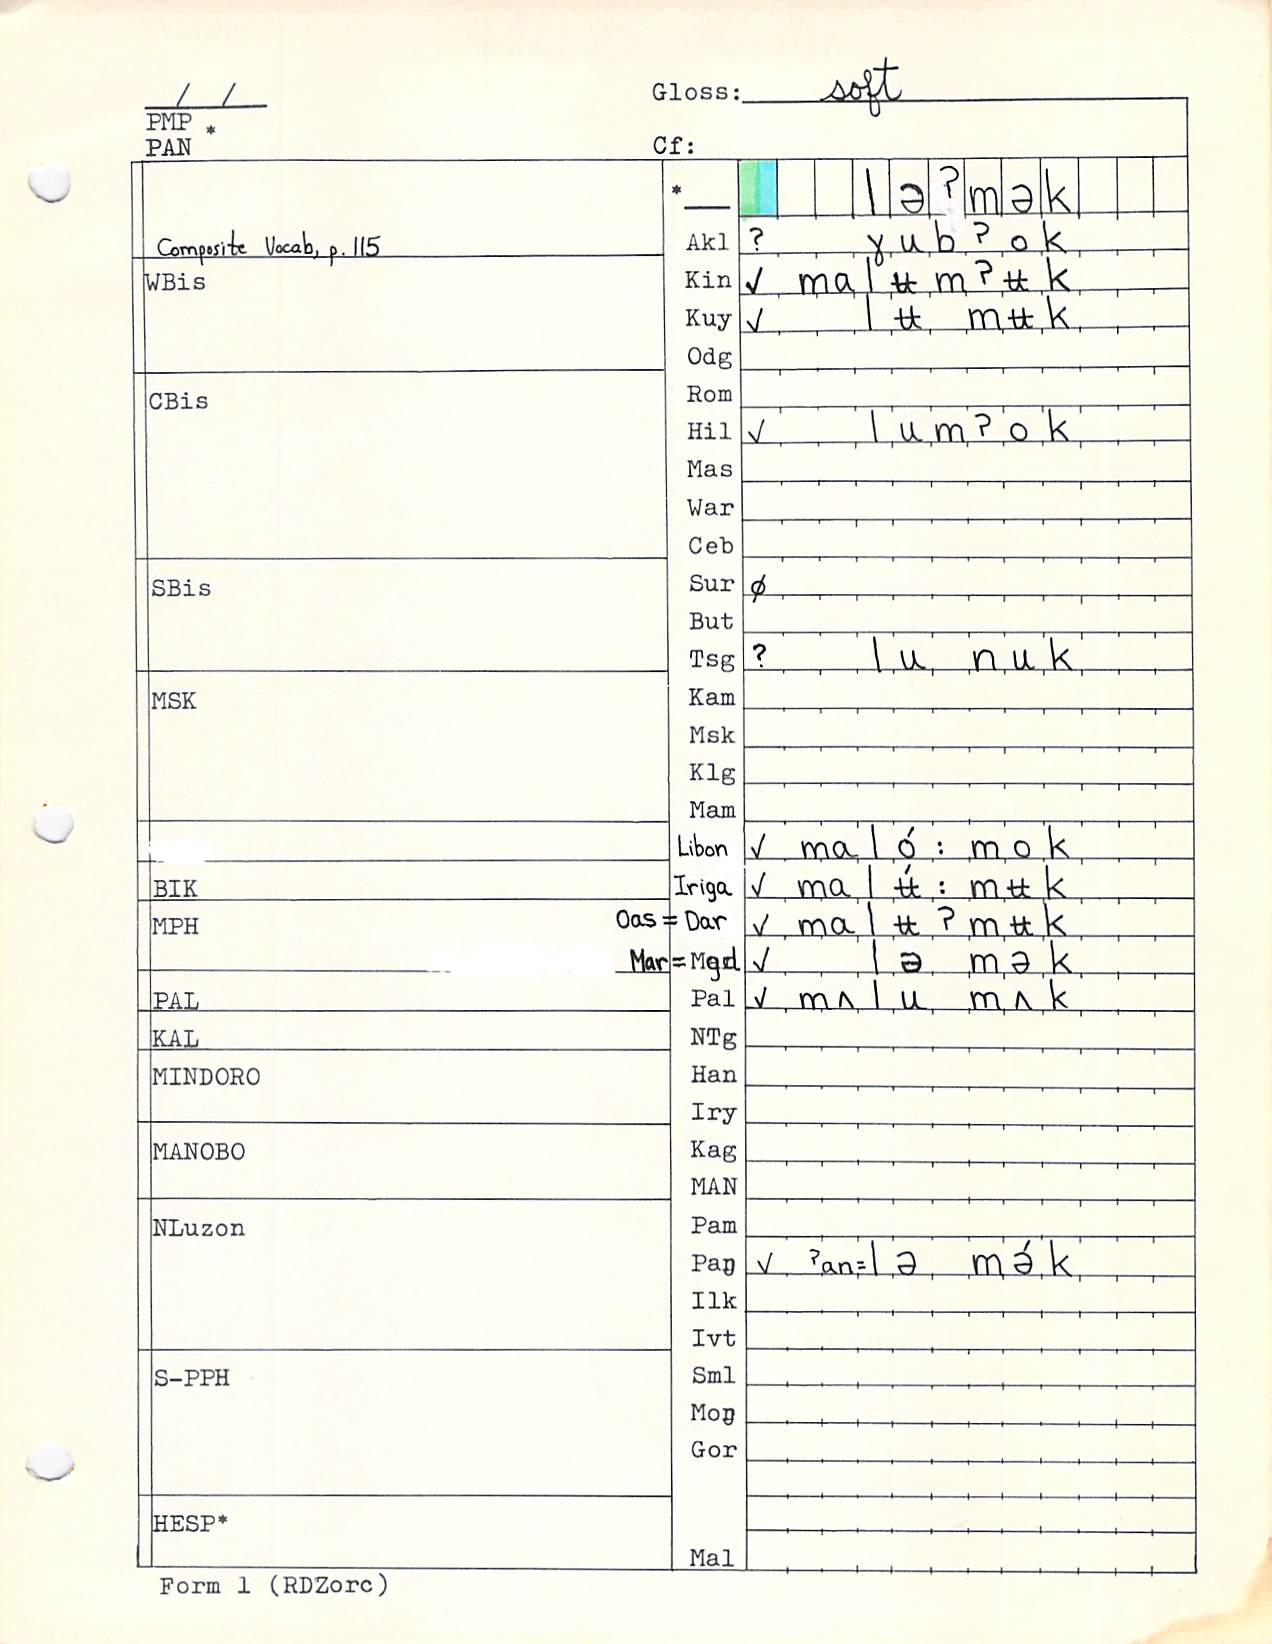 / /
Gloss: soft
PMP *
PAN
Cf:
*__ ləʔmək
Composite Vocab, p. 115
Akl ? ɣubʔok
WBis
Kin ✓ malʉmʔʉk
Kuy ✓ lʉmʉk
Odg
CBis
Rom
Hil ✓ lumʔok
Mas
War
Ceb
SBis
Sur ∅
But
Tsg ? lunuk
MSK
Kam
Msk
Klg
Mam
Libon ✓ maló:mok
BIK
Iriga ✓ malʉ́:mʉk
MPH
Oas = Dar ✓ malʉʔmʉk
Mar = Mgd ✓ ləmək
PAL
Pal ✓ mʌlumʌk
KAL
NTg
MINDORO
Han
Iry
MANOBO
Kag
MAN
NLuzon
Pam
Paŋ ✓ ʔan=ləmə́k
Ilk
Ivt
S-PPH
Sml
Moŋ
Gor
HESP*
Mal
Form 1 (RDZorc)